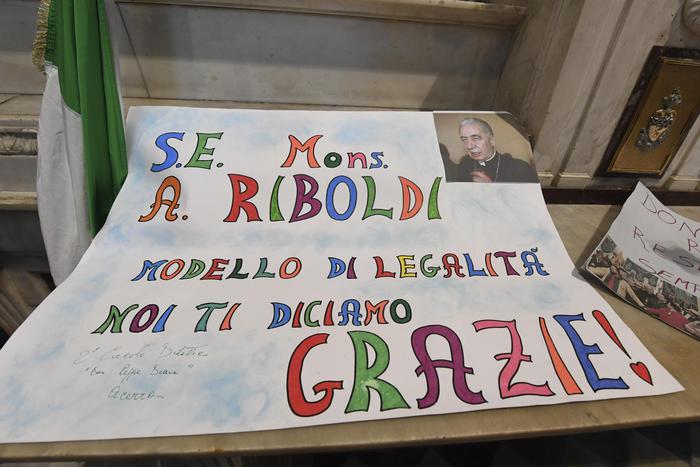 S.E. Mons.
A. RIBOLDI
MODELLO DI LEGALITÀ
NOI TI DICIAMO
GRAZIE!
2° Circolo Didattico
"Don Peppe Diana"
Acerra
DON
R
RES
SEMP